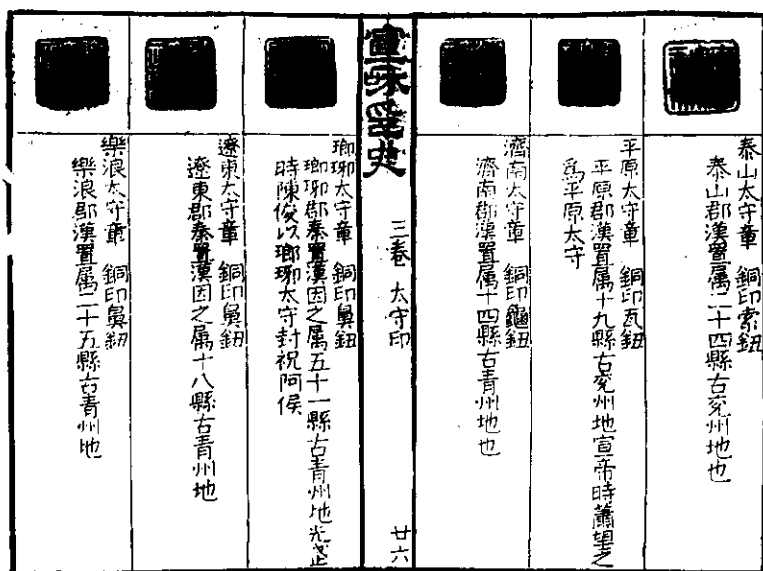 泰山太守章 銅印索鈕
泰山郡漢置属二十四縣古兖州地也
平原太守章 銅印瓦鈕
平原郡漢置属十九縣古兖州地宣帝時蕭望之
爲平原太守
濟南太守章 銅印龜鈕
濟南郡漢置属十四縣古青州地也
宣和印史
三卷 太守印
廿六
瑯琊太守章 銅印鼻鈕
瑯琊郡秦置漢因之属五十一縣古青州地光武
時陳俊以瑯琊太守封祝阿侯
遼東太守章 銅印鼻鈕
遼東郡秦置漢因之属十八縣古青州地
樂浪太守章 銅印鼻鈕
樂浪郡漢置属二十五縣古青州地